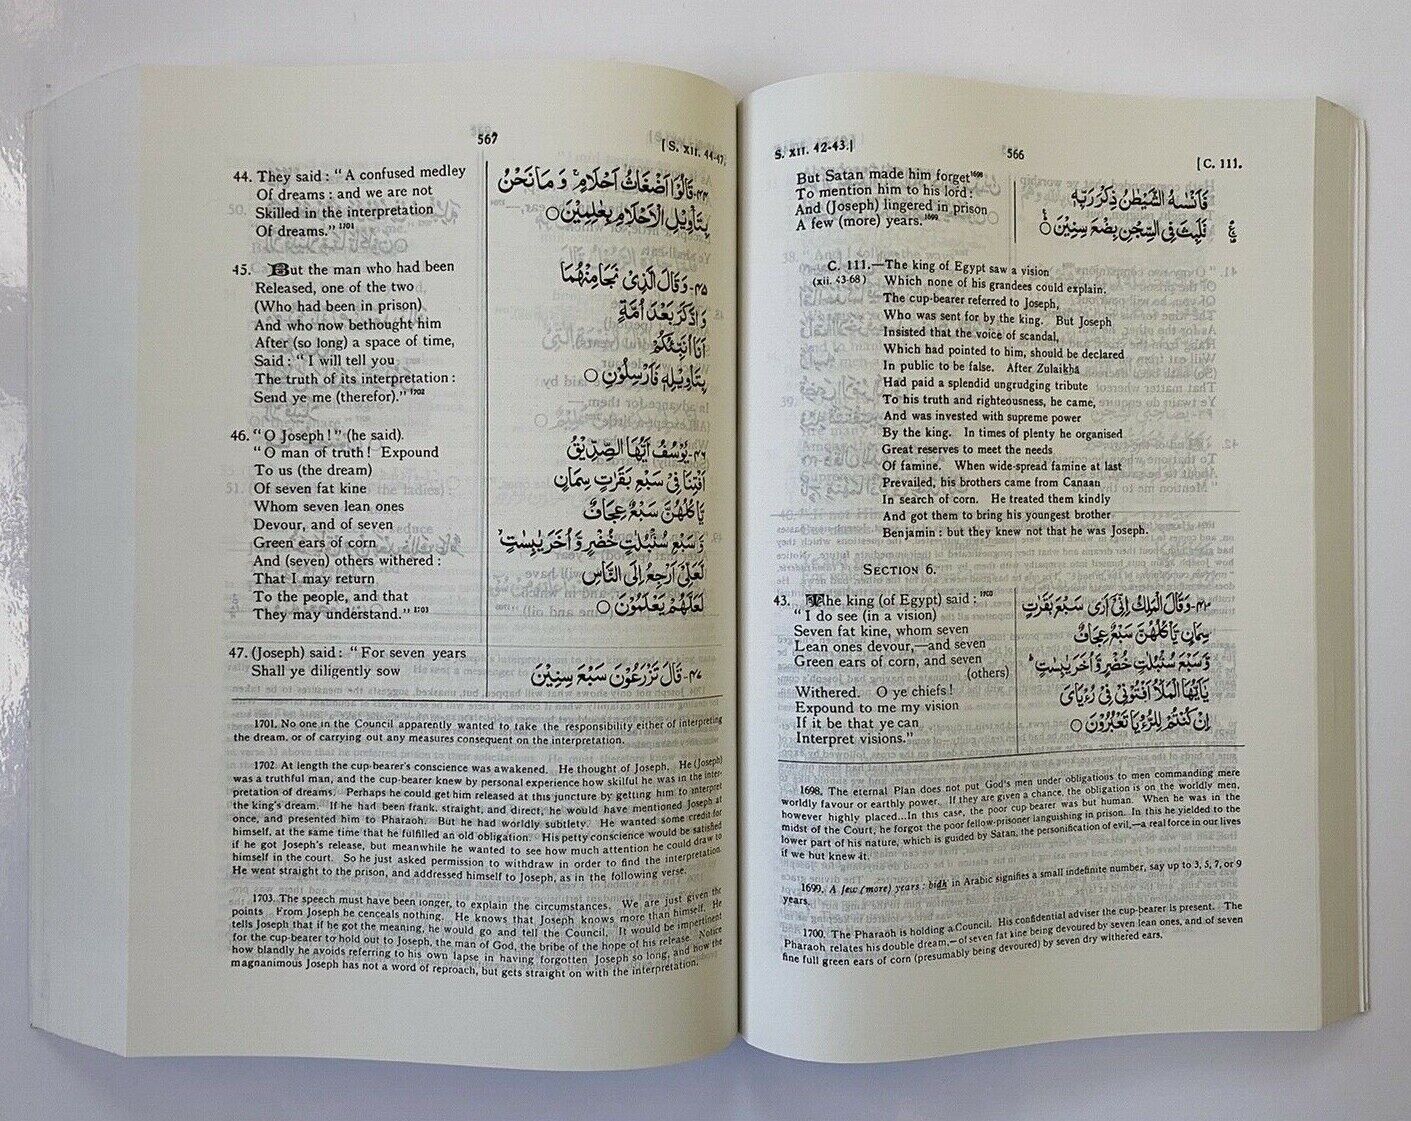 S. XII. 42-43.]
566
[ C. 111.
But Satan made him forget¹⁶⁹⁸
To mention him to his lord :
And (Joseph) lingered in prison
A few (more) years.¹⁶⁹⁹
فَاَنْسٰىهُ الشَّيْطٰنُ ذِكْرَ رَبِّهٖ
فَلَبِثَ فِى السِّجْنِ بِضْعَ سِنِيْنَ ○
C. 111.—The king of Egypt saw a vision
(xii. 43-68) Which none of his grandees could explain.
The cup-bearer referred to Joseph,
Who was sent for by the king. But Joseph
Insisted that the voice of scandal,
Which had pointed to him, should be declared
In public to be false. After Zulaikha
Had paid a splendid ungrudging tribute
To his truth and righteousness, he came,
And was invested with supreme power
By the king. In times of plenty he organised
Great reserves to meet the needs
Of famine. When wide-spread famine at last
Prevailed, his brothers came from Canaan
In search of corn. He treated them kindly
And got them to bring his youngest brother
Benjamin : but they knew not that he was Joseph.
SECTION 6.
43. The king (of Egypt) said :¹⁷⁰⁰
“ I do see (in a vision)
Seven fat kine, whom seven
Lean ones devour,—and seven
Green ears of corn, and seven
(others)
Withered. O ye chiefs !
Expound to me my vision
If it be that ye can
Interpret visions.”
۴۳- وَقَالَ الْمَلِكُ اِنِّىْٓ اَرٰى سَبْعَ بَقَرٰتٍ
سِمَانٍ يَّاْكُلُهُنَّ سَبْعٌ عِجَافٌ
وَّسَبْعَ سُنْۢبُلٰتٍ خُضْرٍ وَّاُخَرَ يٰبِسٰتٍ ؕ
يٰۤاَيُّهَا الْمَلَاُ اَفْتُوْنِىْ فِىْ رُءْيَاىَ
اِنْ كُنْتُمْ لِلرُّءْيَا تَعْبُرُوْنَ ○
1698. The eternal Plan does not put God's men under obligations to men commanding mere
worldly favour or earthly power. If they are given a chance, the obligation is on the worldly men,
however highly placed...In this case, the poor cup-bearer was but human. When he was in the
midst of the Court, he forgot the poor fellow-prisoner languishing in prison. In this he yielded to the
lower part of his nature, which is guided by Satan, the personification of evil,—a real force in our lives
if we but knew it.
1699. A few (more) years : bidh in Arabic signifies a small indefinite number, say up to 3, 5, 7, or 9
years.
1700. The Pharaoh is holding a Council. His confidential adviser the cup-bearer is present. The
Pharaoh relates his double dream,—of seven fat kine being devoured by seven lean ones, and of seven
fine full green ears of corn (presumably being devoured) by seven dry withered ears.
567
[ S. XII. 44-47.
44. They said : “ A confused medley
Of dreams : and we are not
Skilled in the interpretation
Of dreams.” ¹⁷⁰¹
۴۴- قَالُوْٓا اَضْغَاثُ اَحْلَامٍ ۚ وَمَا نَحْنُ
بِتَاْوِيْلِ الْاَحْلَامِ بِعٰلِمِيْنَ ○
45. But the man who had been
Released, one of the two
(Who had been in prison)
And who now bethought him
After (so long) a space of time,
Said : “ I will tell you
The truth of its interpretation :
Send ye me (therefor).” ¹⁷⁰²
۴۵- وَقَالَ الَّذِىْ نَجَا مِنْهُمَا
وَادَّكَرَ بَعْدَ اُمَّةٍ
اَنَا اُنَبِّئُكُمْ
بِتَاْوِيْلِهٖ فَاَرْسِلُوْنِ ○
46. “O Joseph !” (he said).
“O man of truth ! Expound
To us (the dream)
Of seven fat kine
Whom seven lean ones
Devour, and of seven
Green ears of corn
And (seven) others withered :
That I may return
To the people, and that
They may understand.” ¹⁷⁰³
۴۶- يُوْسُفُ اَيُّهَا الصِّدِّيْقُ
اَفْتِنَا فِىْ سَبْعِ بَقَرٰتٍ سِمَانٍ
يَّاْكُلُهُنَّ سَبْعٌ عِجَافٌ
وَّسَبْعِ سُنْۢبُلٰتٍ خُضْرٍ وَّاُخَرَ يٰبِسٰتٍ
لَّعَلِّىْٓ اَرْجِعُ اِلَى النَّاسِ
لَعَلَّهُمْ يَعْلَمُوْنَ ○
47. (Joseph) said : “ For seven years
Shall ye diligently sow
۴۷- قَالَ تَزْرَعُوْنَ سَبْعَ سِنِيْنَ
1701. No one in the Council apparently wanted to take the responsibility either of interpreting
the dream, or of carrying out any measures consequent on the interpretation.
1702. At length the cup-bearer's conscience was awakened. He thought of Joseph. He (Joseph)
was a truthful man, and the cup-bearer knew by personal experience how skilful he was in the inter-
pretation of dreams. Perhaps he could get him released at this juncture by getting him to interpret
the king's dream. If he had been frank, straight, and direct, he would have mentioned Joseph at
once, and presented him to Pharaoh. But he had worldly subtlety. He wanted some credit for
himself, at the same time that he fulfilled an old obligation. His petty conscience would be satisfied
if he got Joseph's release, but meanwhile he wanted to see how much attention he could draw to
himself in the court. So he just asked permission to withdraw in order to find the interpretation.
He went straight to the prison, and addressed himself to Joseph, as in the following verse.
1703. The speech must have been longer, to explain the circumstances. We are just given the
points. From Joseph he cenceals nothing. He knows that Joseph knows more than himself. He
tells Joseph that if he got the meaning, he would go and tell the Council. It would be impertinent
for the cup-bearer to hold out to Joseph, the man of God, the bribe of the hope of his release. Notice
how blandly he avoids referring to his own lapse in having forgotten Joseph so long, and how the
magnanimous Joseph has not a word of reproach, but gets straight on with the interpretation.